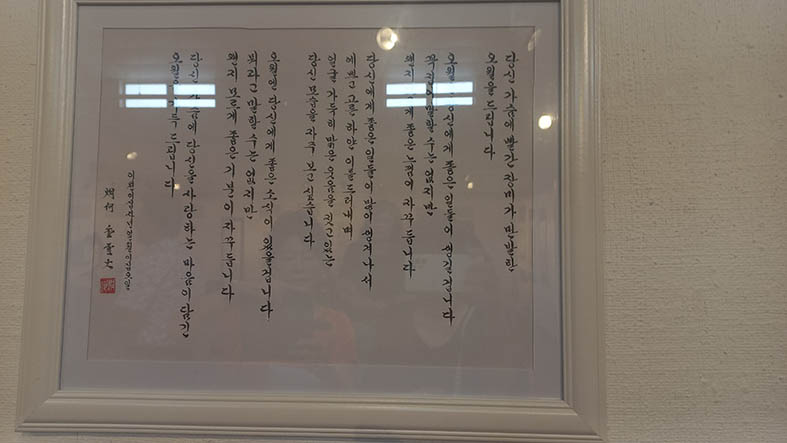 당신 가슴에 빨간 장미가 만발한
오월을 드립니다
오월엔 당신에게 좋은 일들이 생길겁니다
꼭 집어 말할 수는 없지만
왠지 모르게 좋은 느낌이 자꾸 듭니다
당신에게 좋은 일들이 많이 생겨나서
예쁘고 고른 하얀 이를 드러내며
얼굴 가득히 맑은 웃음을 짓고 있는
당신 모습을 자주 보고 싶습니다
오월엔 당신에게 좋은 소식이 있을겁니다
뭐라고 말할 수는 없지만
왠지 모르게 좋은 기분이 자꾸 듭니다
당신 가슴에 당신을 사랑하는 마음이 담긴
오월을 가득 드립니다